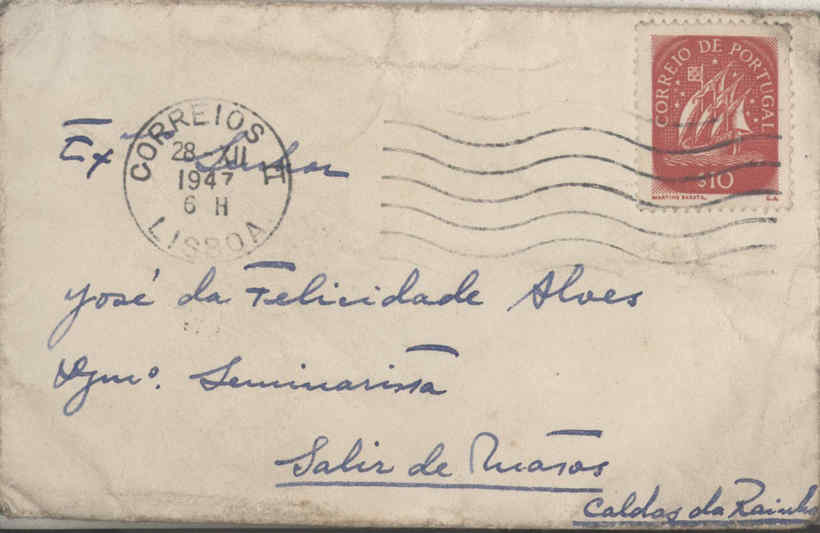 CORREIO DE PORTUGAL
$10
MARTINS BARATA.
CORREIOS
28 XII
1947
6 H
LISBOA
Exmo Senhor
José da Felicidade Alves
Dgmº. Seminarista
Salir de Matos
Caldas da Rainha